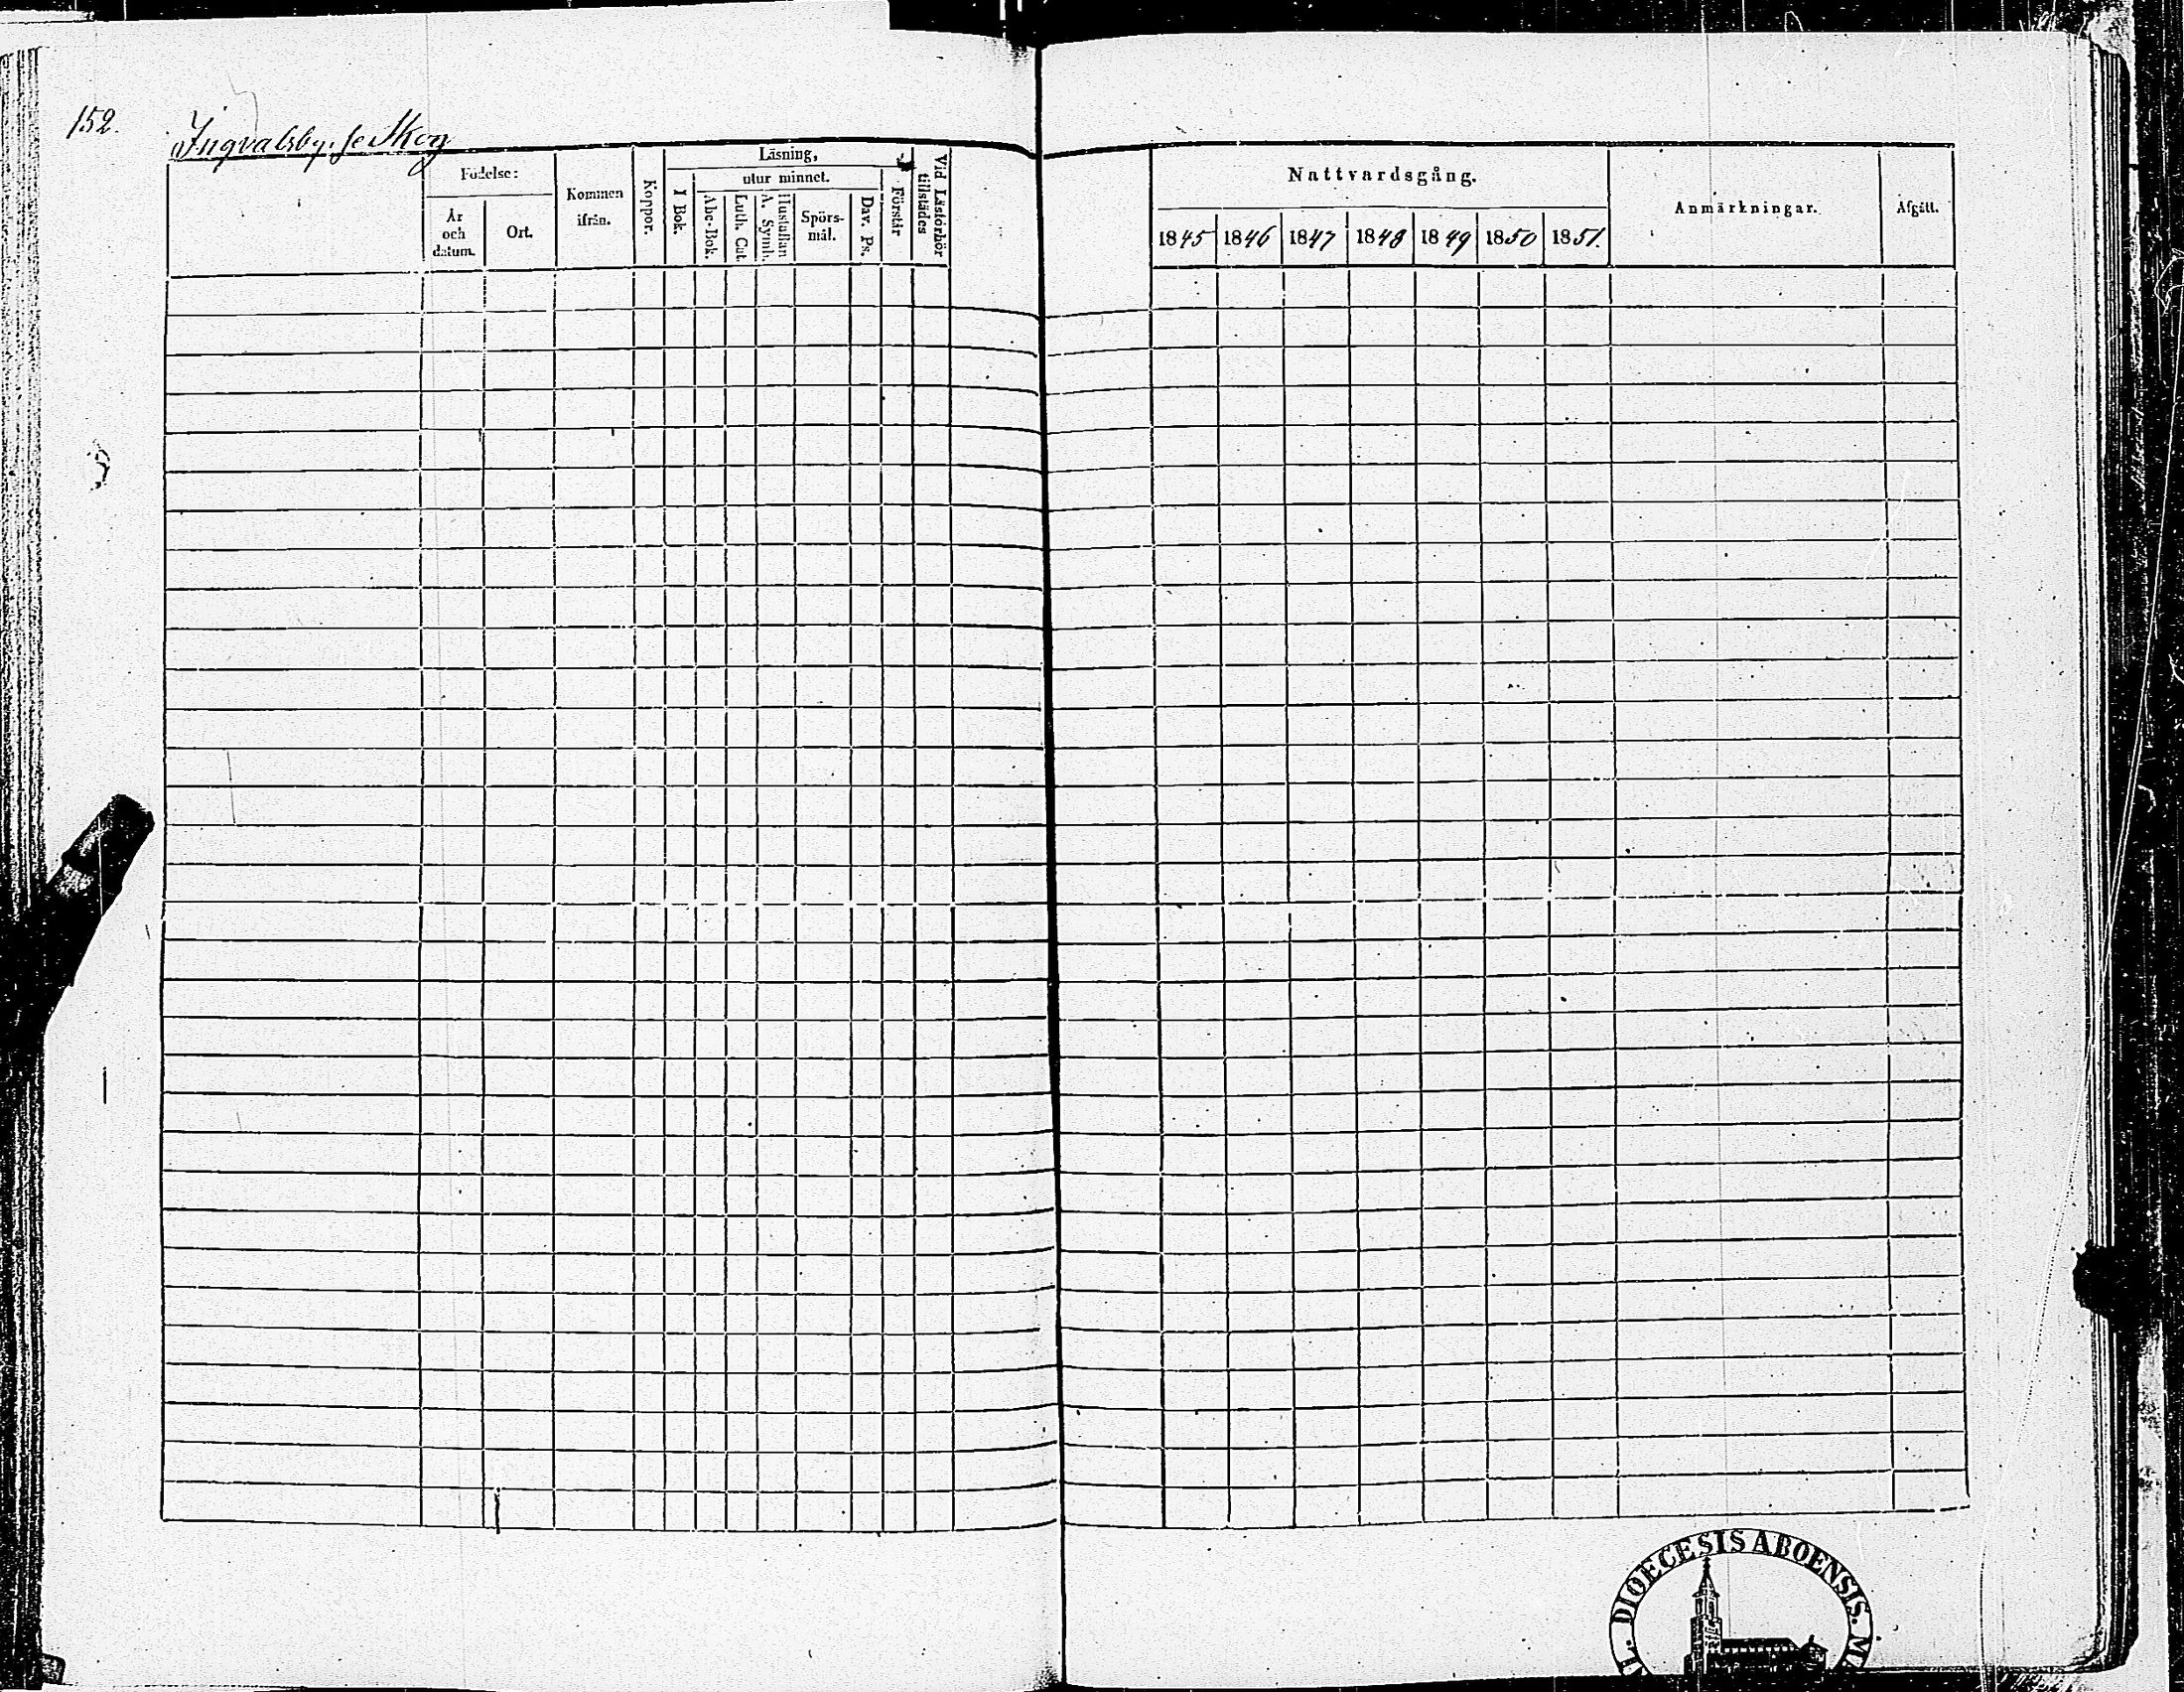 152.
Ingvalsby. se Skog
Födelse:
År
och
datum.
Ort.
Kommen
ifrån.
Koppor.
Läsning,
I Bok.
utur minnet.
Abc-Bok.
Luth. Cat.
Hustaflan
A. Symb.
Spörs-
mål.
Dav. Ps.
Förstår
Vid Läsförhör
tillstädes
Nattvardsgång.
1845 1846 1847 1848 1849 1850 1851.
Anmärkningar.
Afgått.
DIOECESIS ABOENSIS. M